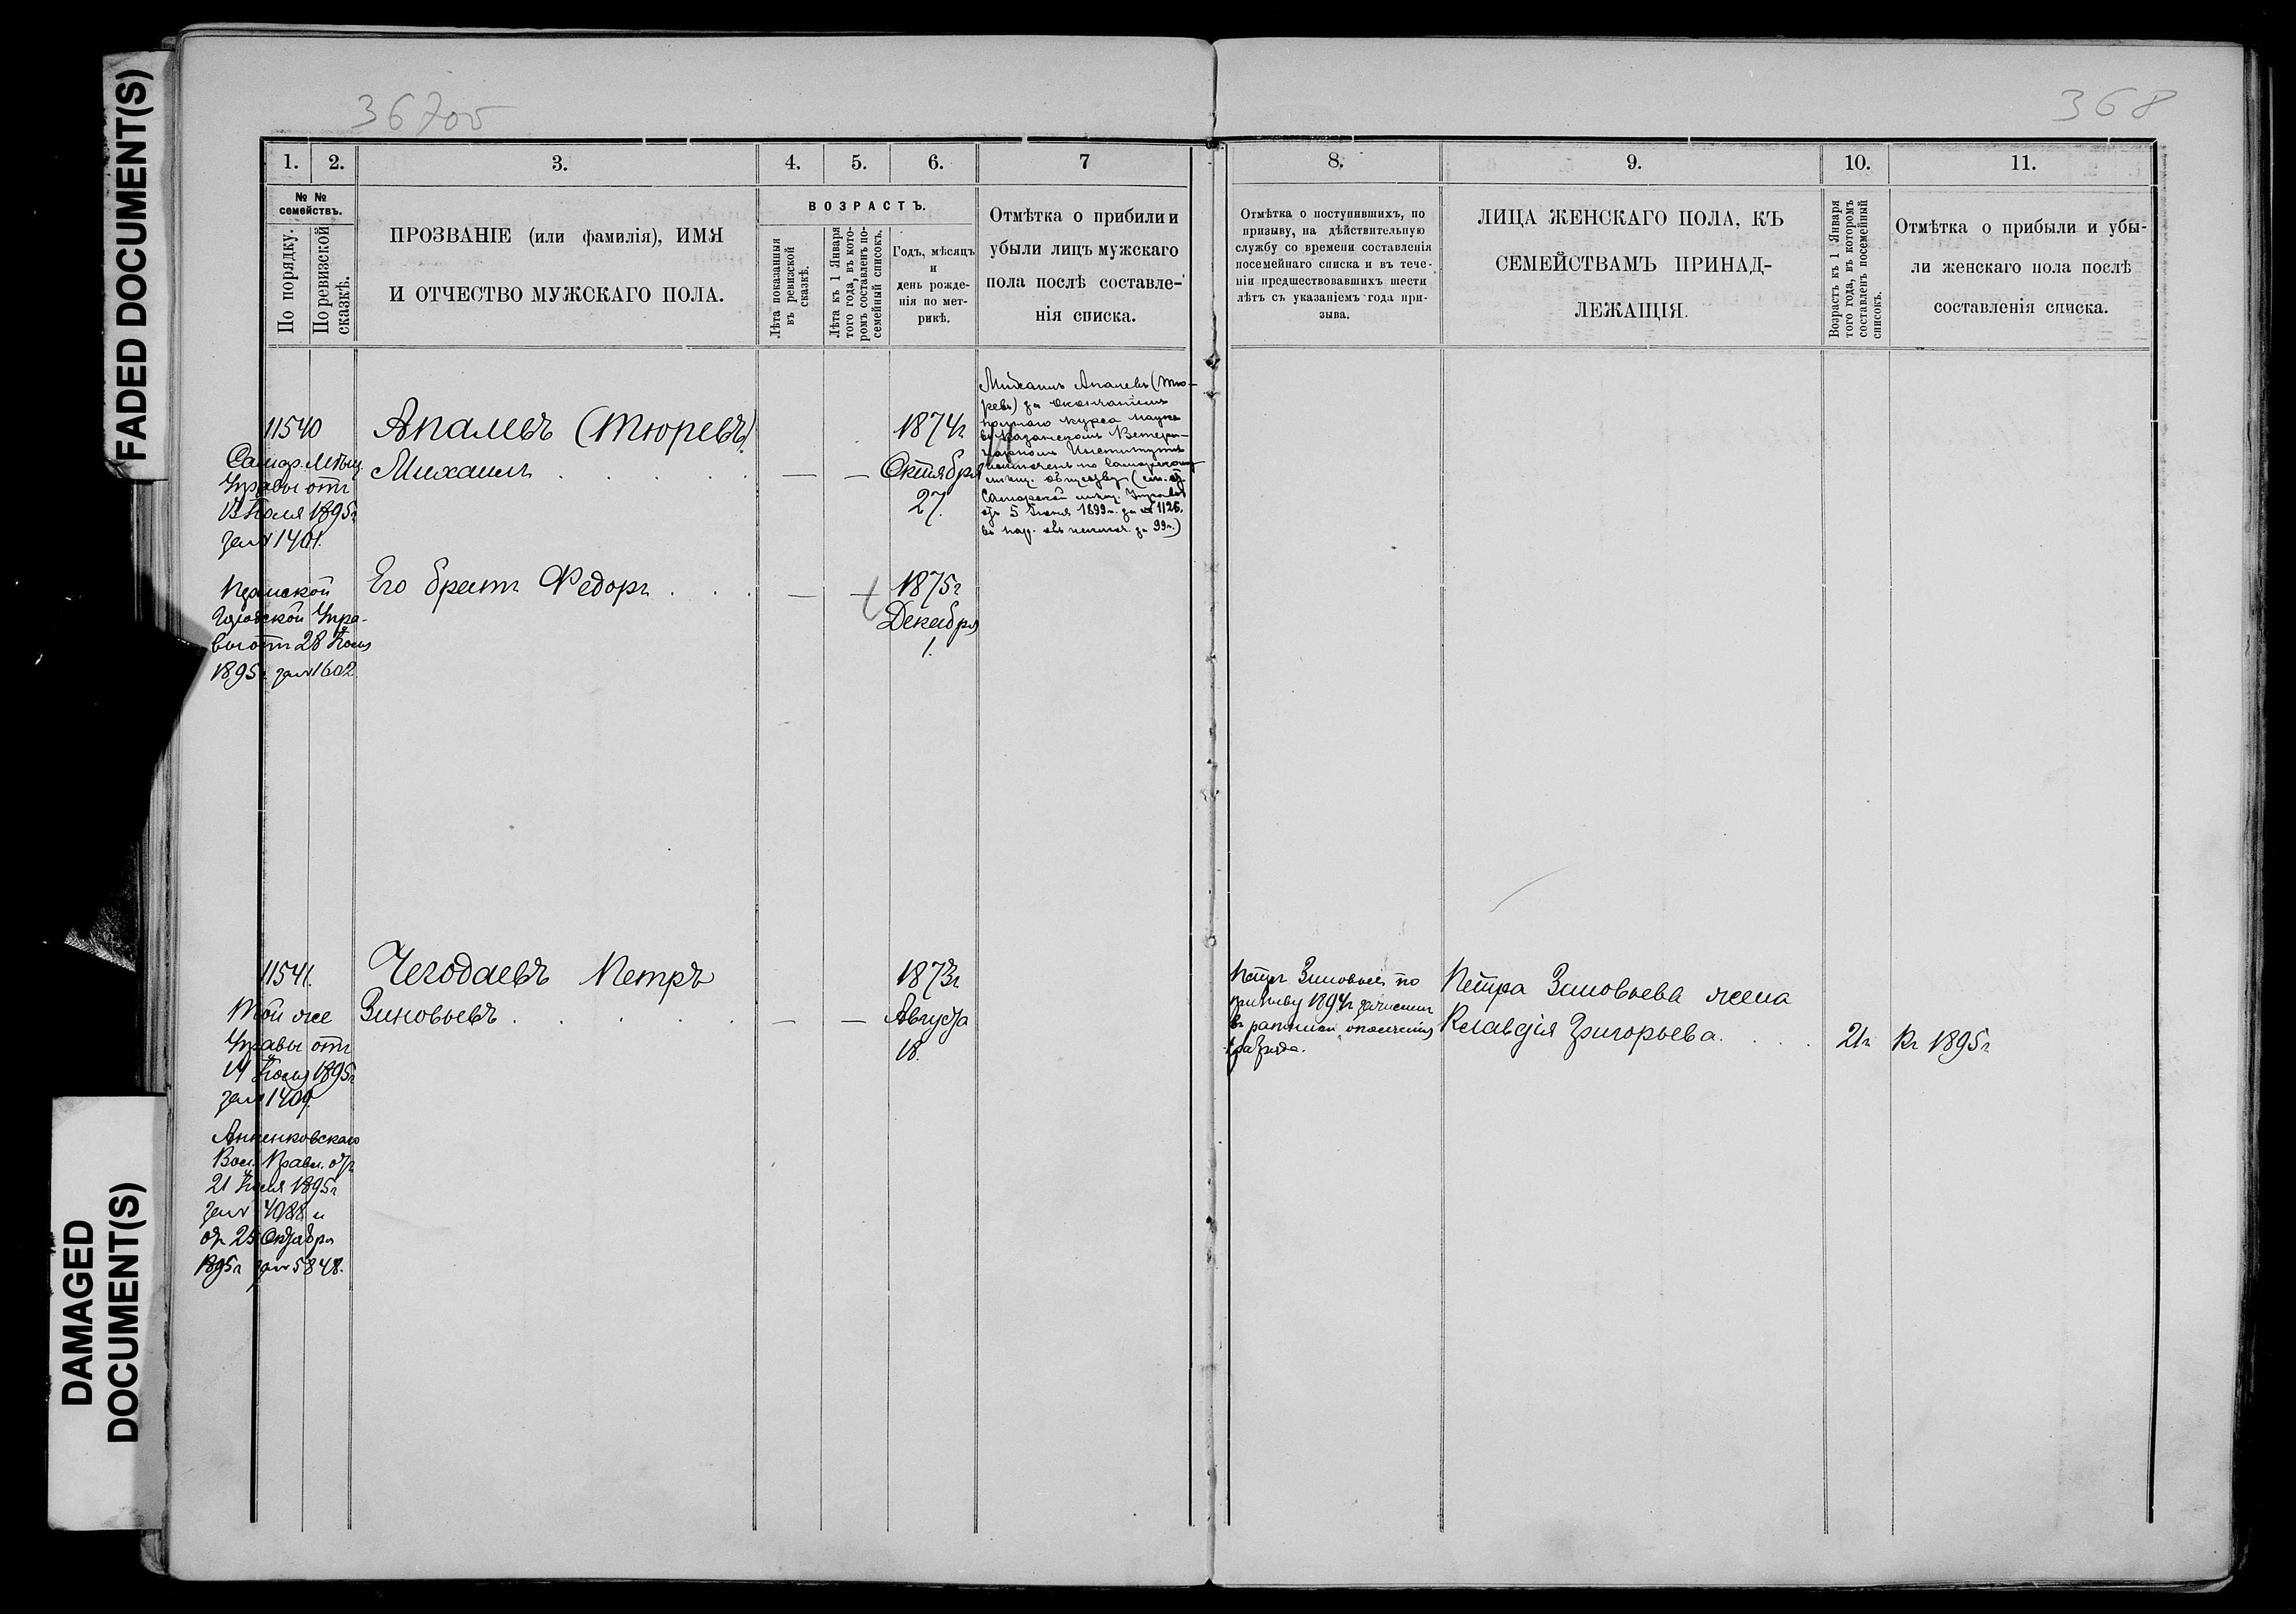 FADED DOCUMENT(S)
DAMAGED
DOCUMENT(S)
367об
368
1.
2.
3.
4.
5.
6.
7
№ №
семействъ.
По порядку.
По ревизской
сказкѣ.
ПРОЗВАНІЕ (или фамилія), ИМЯ
И ОТЧЕСТВО МУЖСКАГО ПОЛА.
ВОЗРАСТЪ.
Лѣта показанныя
въ ревизской
сказкѣ.
Лѣта къ 1 Января
того года, въ кото-
ромъ составленъ по-
семейный списокъ.
Годъ, мѣсяцъ
и
день рожде-
нія по мет-
рикѣ.
Отмѣтка о прибыли и
убыли лицъ мужскаго
пола послѣ составле-
нія списка.
8.
9.
10.
11.
Отмѣтка о поступившихъ, по
призыву, на дѣйствительную
службу со времени составленія
посемейнаго списка и въ тече-
ніи предшествовавшихъ шести
лѣтъ съ указаніемъ года при-
зыва.
ЛИЦА ЖЕНСКАГО ПОЛА, КЪ
СЕМЕЙСТВАМЪ ПРИНАД-
ЛЕЖАЩІЯ.
Возрастъ къ 1 Января
того года, въ которомъ
составленъ посемейный
списокъ.
Отмѣтка о прибыли и убы-
ли женскаго пола послѣ
составленія списка.
11540
Самар. Мѣщ.
Управы отъ
13 Іюля 1895г
за № 1401.
Апалевъ (Тюревъ)
Михаилъ
1874г
Октября
27.
Михаилъ Апалевъ (Тю-
ревъ) за окончаніемъ
полнаго курса наукъ
въ Казанскомъ Ветери-
нарномъ Институтѣ
исключенъ по Самарскому
мѣщ. обществу (см. от.
Самарской мѣщ. Управы
отъ 5 Іюня 1899г. за № 1126.
въ нар. объ исключ. за 99г.)
городской Упра-
вы отъ 28 Іюля
1895г. за № 1602.
Его братъ Федоръ
1875г
Декабря
1.
11541.
Той же
Управы отъ
14 Іюля 1895г
за № 1409.
Анненковскаго
Вол. Правл. отъ
21 Іюля 1895г
за № 4088 и
отъ 25 Октября
1895г за № 5848.
Чегодаевъ Петръ
Зиновьевъ
1873г
Августа
18.
Петръ Зиновьевъ по
призыву 1894г зачисленъ
въ ратники ополченія
1 разряда.
Петра Зиновьева жена
Клавдія Григорьева.
21г
Къ 1895г